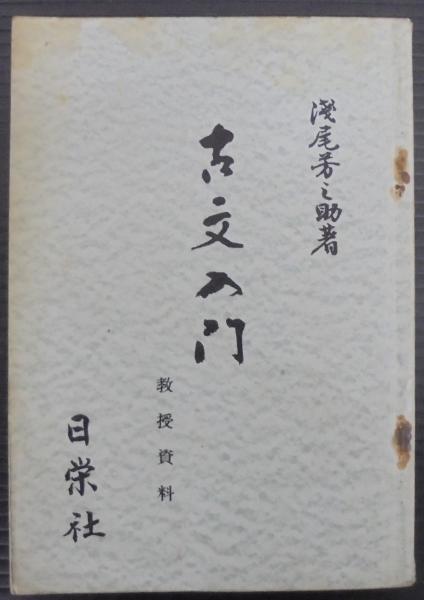 淺尾芳之助著
古文入門
教授資料
日栄社